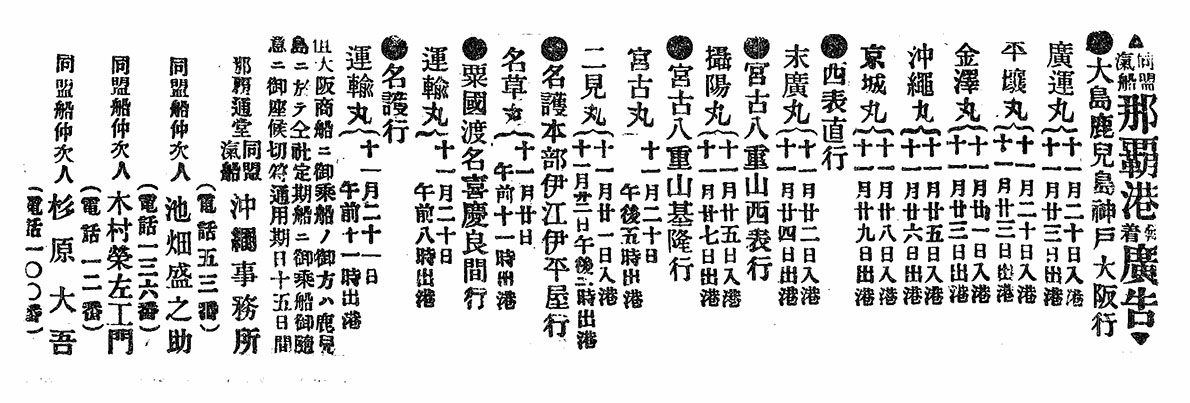 ▲同盟汽船那覇港発着廣告▼
●大島鹿兒島神戸大阪行
廣運丸{十一月二十日入港
十一月廿三日出港
平壤丸{十一月二十日入港
十一月廿三日出港
金澤丸{十一月廿一日入港
十一月廿三日出港
沖繩丸{十一月廿五日入港
十一月廿六日出港
京城丸{十一月廿八日入港
十一月廿九日出港
●西表直行
末廣丸{十一月廿二日入港
十一月廿四日出港
●宮古八重山西表行
攝陽丸{十一月廿五日入港
十一月廿七日出港
●宮古八重山基隆行
宮古丸 十一月二十日
午後五時出港
二見丸{十一月廿一日入港
十一月廿二日午後二時出港
●名護本部伊江伊平屋行
名草丸 十一月廿日
午前十一時出港
●粟國渡名喜慶良間行
運輸丸 十一月二十日
午前八時出港
●名護行
運輸丸{十一月二十一日
午前十一時出港
但大阪商船ニ御乘船ノ御方ハ鹿兒
島ニ於テ仝社定期船ニ御乘船御隨
意ニ御座候切符通用期日十五日間
那覇通堂 同盟汽船 沖繩事務所
(電話五三番)
同盟船仲次人 池畑盛之助
(電話一三六番)
同盟船仲次人 木村榮左工門
(電話一二番)
同盟船仲次人 杉原大吾
(電話一〇〇番)